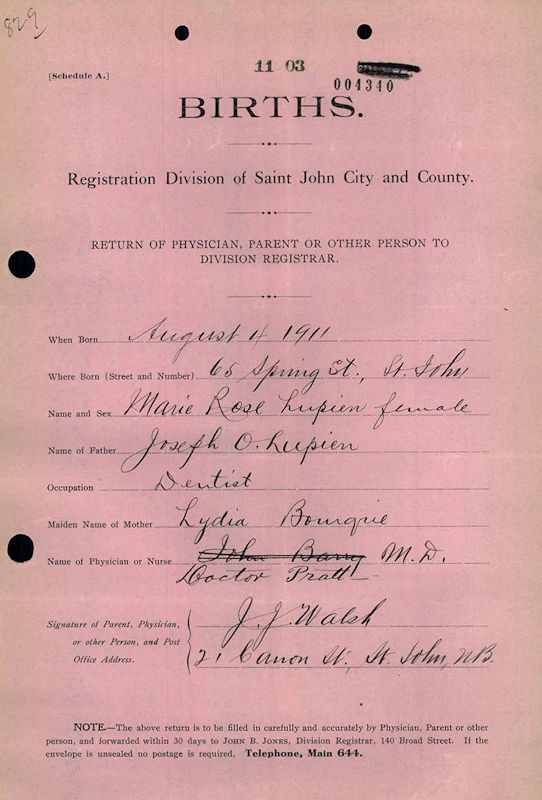 829
11 03
[Schedule A.]
004340
BIRTHS.
Registration Division of Saint John City and County.
RETURN OF PHYSICIAN, PARENT OR OTHER PERSON TO
DIVISION REGISTRAR.
When Born August 4 1911
Where Born (Street and Number) 65 Spring St., St. John
Name and Sex Marie Rose Lupien female
Name of Father Joseph O. Lupien
Occupation Dentist
Maiden Name of Mother Lydia Bourque
Name of Physician or Nurse John Barry M.D.
Doctor Pratt
Signature of Parent, Physician,
or other Person, and Post
Office Address.
J. J. Walsh
21 Canon St., St. John, N.B.
NOTE.—The above return is to be filled in carefully and accurately by Physician, Parent or other
person, and forwarded within 30 days to JOHN B. JONES, Division Registrar, 140 Broad Street. If the
envelope is unsealed no postage is required. Telephone, Main 644.